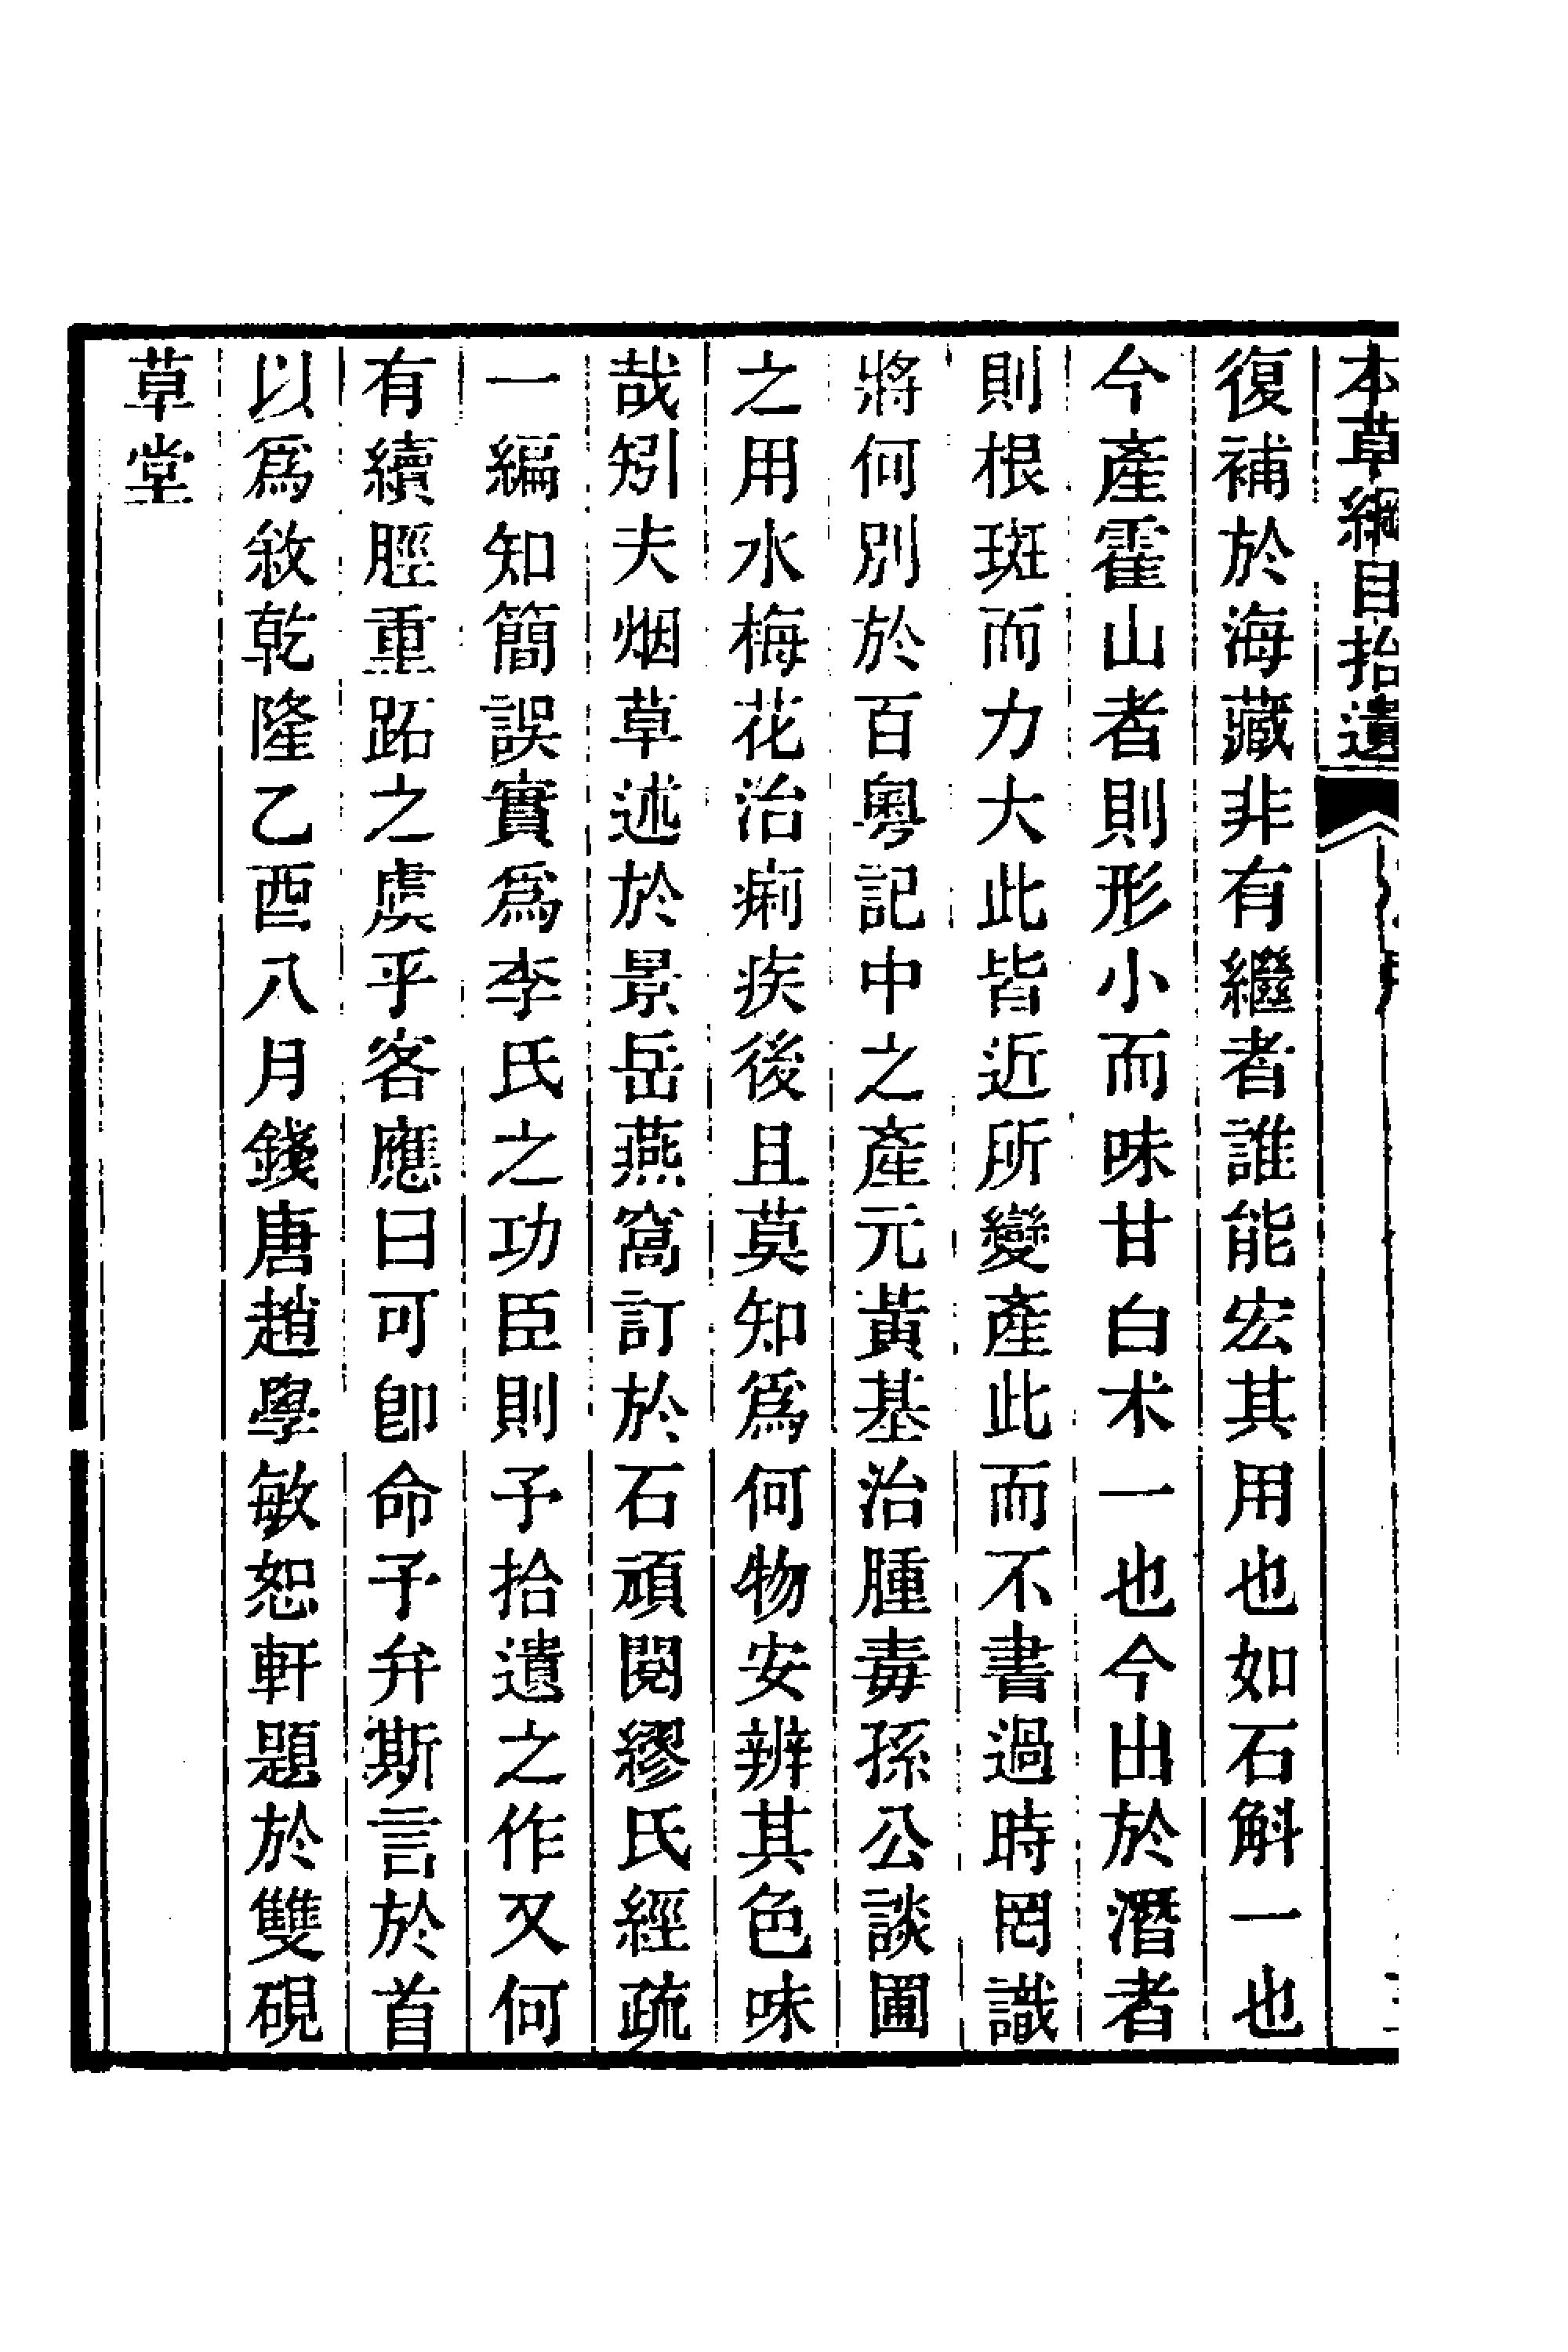 本草綱目拾遺
復補於海藏非有繼者誰能宏其用也如石斛一也
今產霍山者則形小而味甘白术一也今出於潛者
則根斑而力大此皆近所變產此而不書過時罔識
將何別於百粵記中之產元黃基治腫毒孫公談圃
之用水梅花治痢疾後且莫知爲何物安辨其色味
哉矧夫烟草述於景岳燕窩訂於石頑閱繆氏經疏
一編知簡誤實爲李氏之功臣則予拾遺之作又何
有續脛重跖之虞乎客應曰可卽命予弁斯言於首
以爲敘乾隆乙酉八月錢唐趙學敏恕軒題於雙硯
草堂